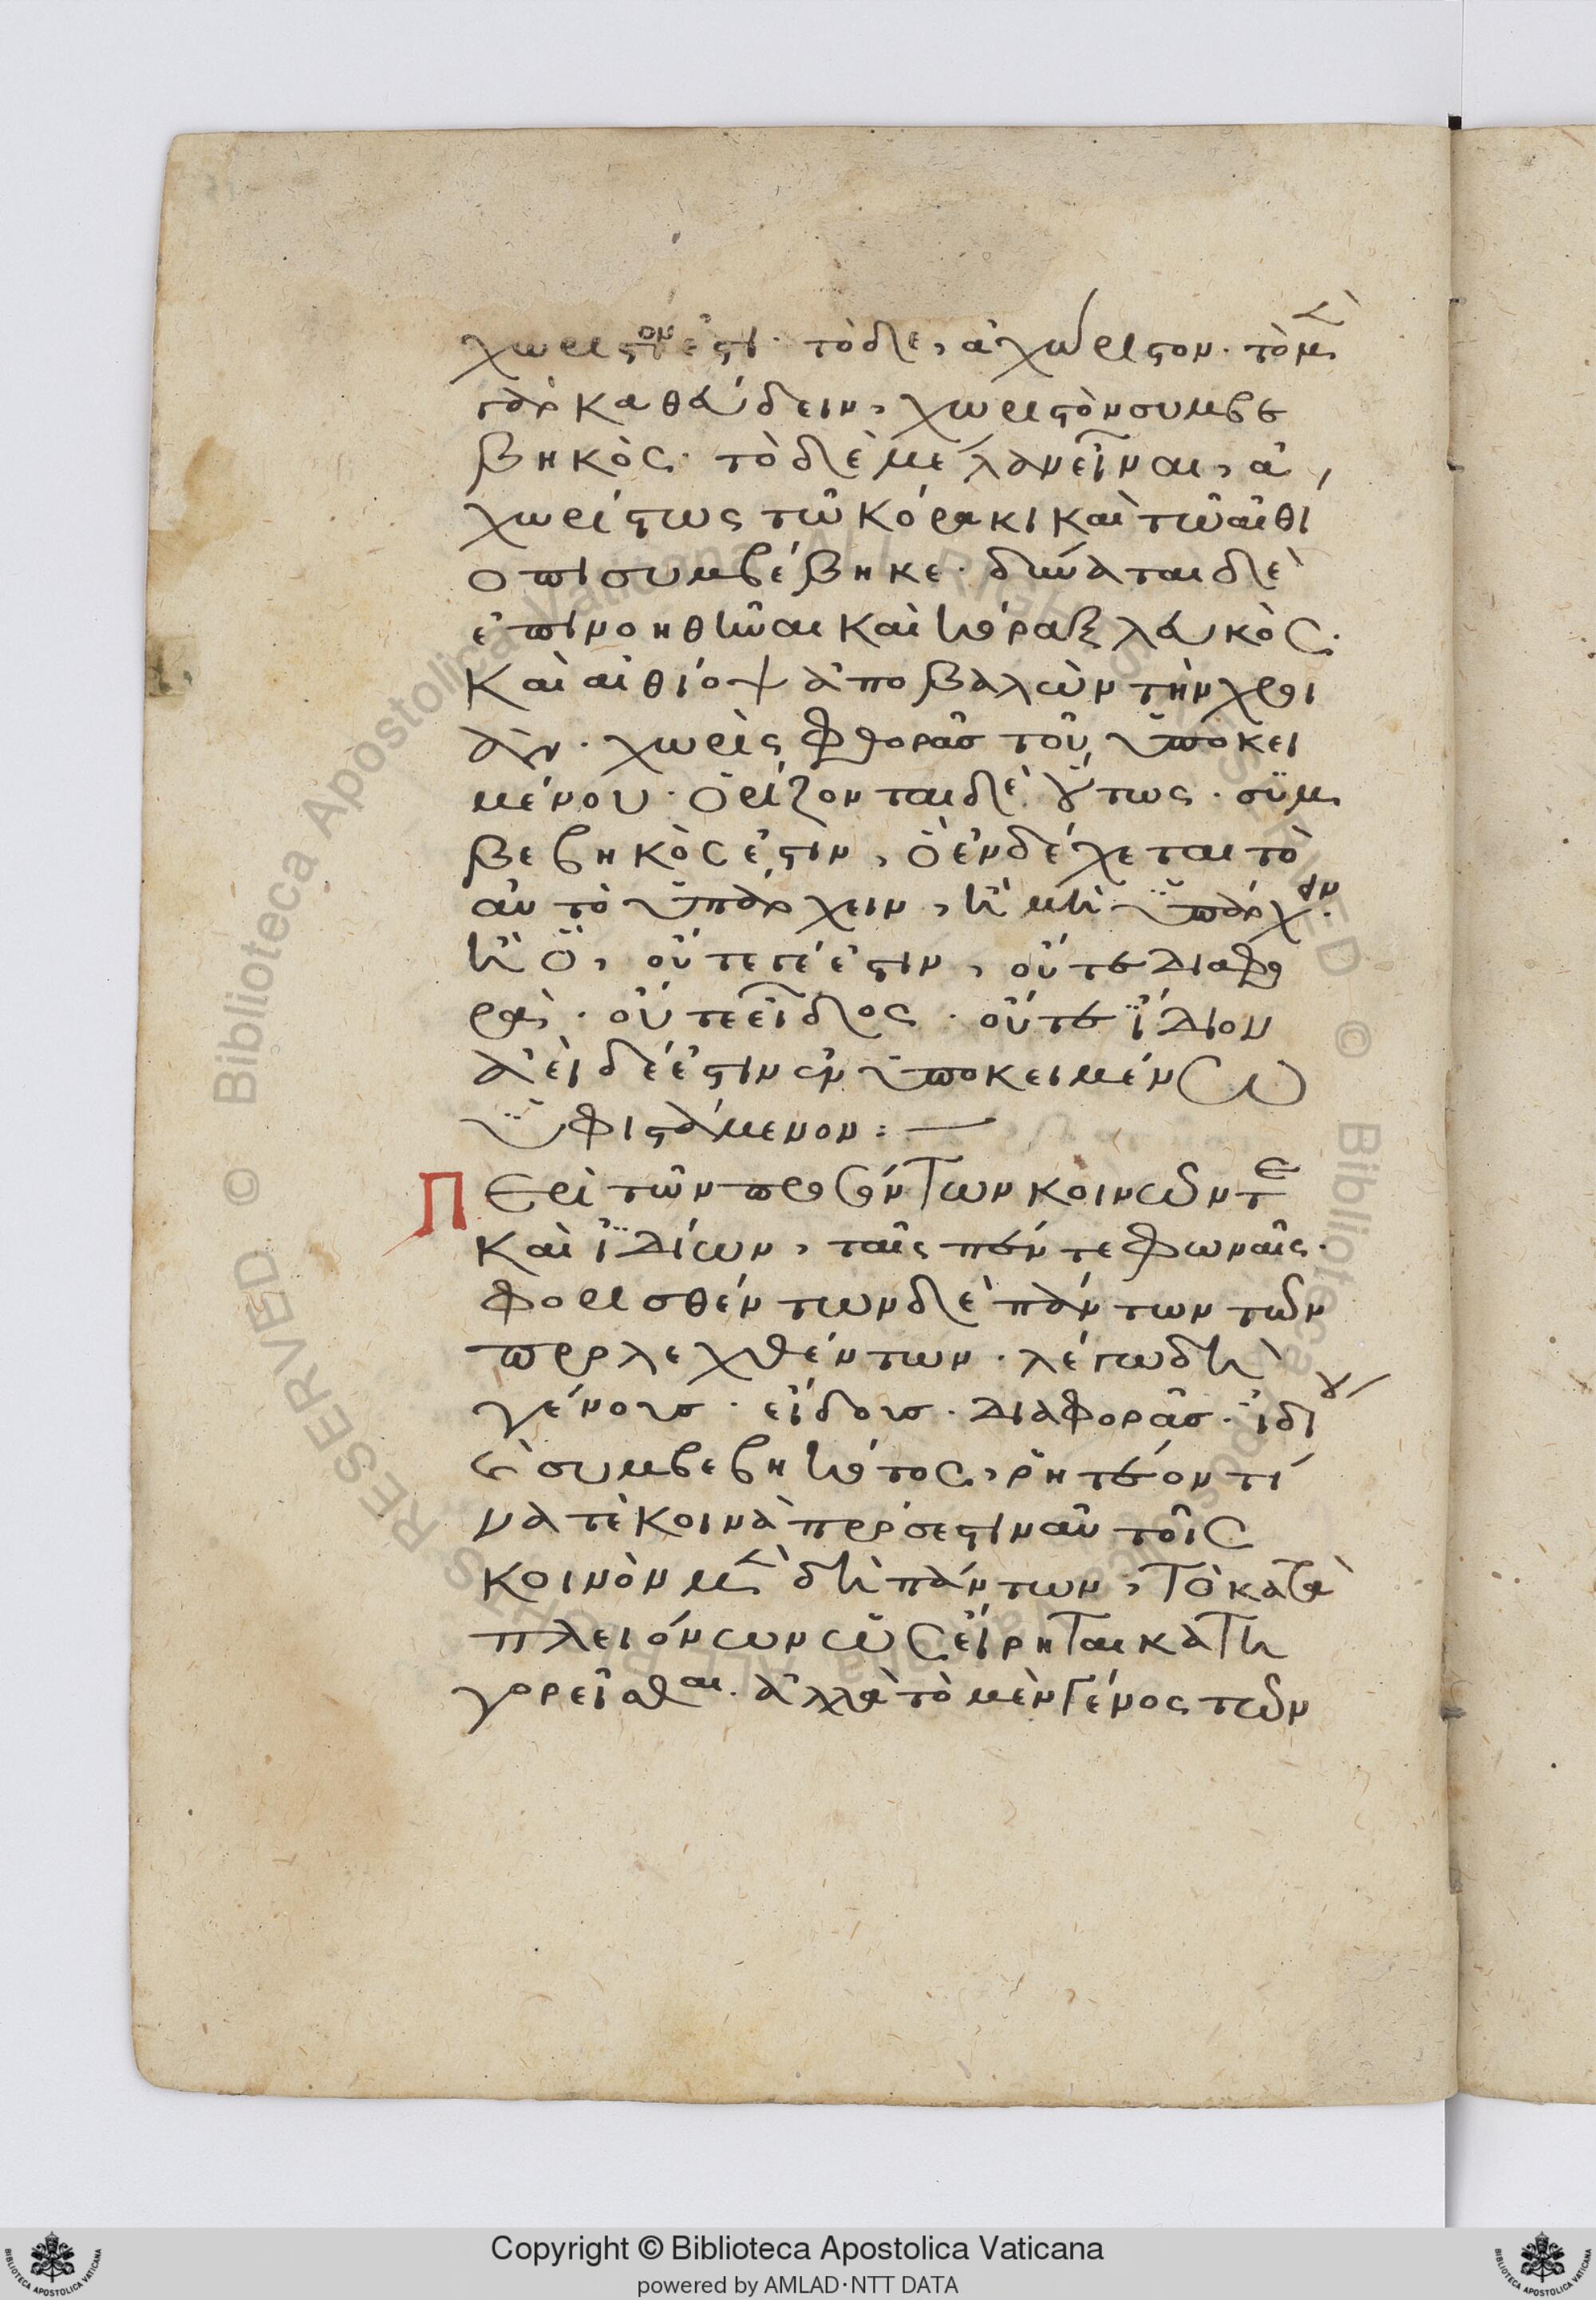 χωριστόν ἐστι· τὸ δὲ, ἀχώριστον· τὸ μὲν
γὰρ καθεύδειν, χωριστὸν συμβε
βηκὸς· τὸ δὲ μέλαν εἶναι, ἀ
χωρίστως τῶ κόρακι καὶ τῶ αἰθί
οπι συμβέβηκε· δύναται δὲ
ἐπινοηθῆναι καὶ κόραξ λευκὸς·
καὶ αἰθίοψ ἀποβαλὼν τὴν χροι
άν· χωρὶς φθορᾶς τοῦ ὑποκει
μένου· ὁρίζονται δὲ οὕτως· συμ
βεβηκός ἐστιν, ὃ ἐνδέχεται τὸ
αὐτὸ ὑπάρχειν, ἢ μὴ ὑπάρχειν·
ἢ ὃ, οὔτε γέ ἐστιν, οὔτε διαφο
ρὰ· οὔτε εἶδος· οὔτε ἴδιον
ἀεὶ δέ ἐστιν ἐν ὑποκειμένω
ὑφιστάμενον:—
Περὶ τῶν προσόντων κοινῶν τε
καὶ ἰδίων, ταῖς πέντε φωναῖς·
φορισθέντων δὲ πάντων τῶν
προλεχθέντων· λέγω δὴ
γένους· εἴδους· διαφορᾶς· ἰδίου
καὶ συμβεβηκότος, ῥητέον τί
να τὲ κοινὰ πρόσεστιν αὐτοῖς
κοινὸν μὲν δὴ πάντων, τὸ κατὰ
πλειόνων ὡς εἴρηται κατη
γορεῖσθαι· ἀλλὰ τὸ μὲν γένος τῶν
Copyright © Biblioteca Apostolica Vaticana
powered by AMLAD·NTT DATA